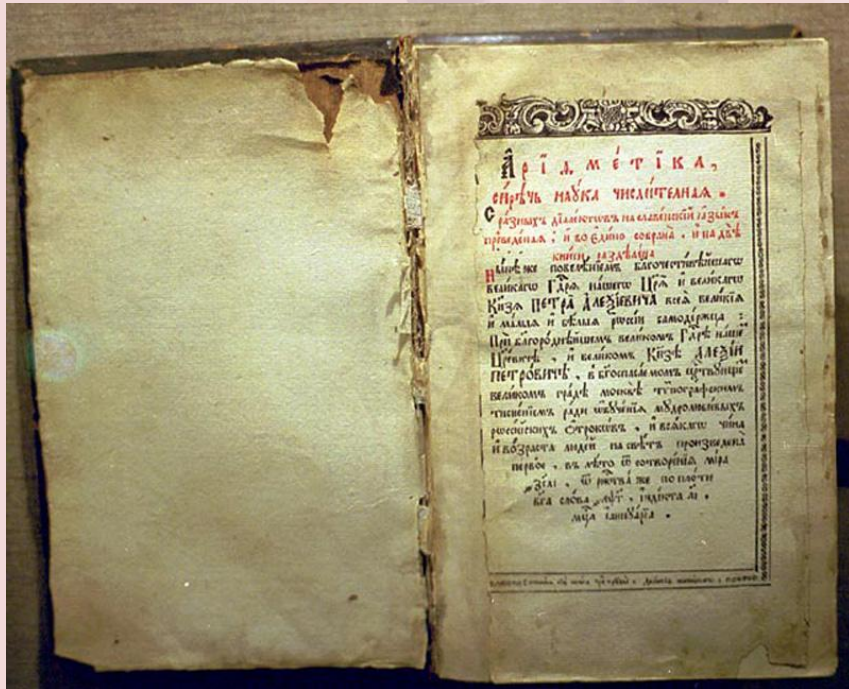 Арїѳмétїка,
сирѣчь наýка числи́телная.
С разныхъ дїале́ктѡвъ на славе́нскїй ꙗзы́къ
преведе́наѧ, и во єди́но собрана̀, и на двѣ̀
кни̑ги раздѣлена̀
Ны́нѣ же повелѣ́нїемъ благочести́вѣйшагѡ
вели́кагѡ Гдⷭ҇рѧ на́шегѡ Цр҃ѧ̀ и вели́кагѡ
Кн҃зѧ ПЕТРА̀ АЛЕѮІ́ЕВИЧА всеѧ̀ вели́кїѧ
и ма́лыѧ и бѣ́лыѧ рѡссі́и самоде́ржца:
Прѝ благоро́днѣйшемъ вели́комъ Гдⷭ҇рѣ на́шемъ
Цр҃е́вичѣ, и вели́комъ Кн҃зѣ АЛЕѮІ́И
ПЕТРО́ВИЧѢ, в бг҃оспаса́емомъ ца́рствующемъ
вели́комъ гра́дѣ москвѣ̀ тѷпогра́фскимъ
тисне́нїемъ ра́ди ѡбꙋче́нїѧ мꙋдролюби́выхъ
рѡссі́йскихъ ѻ҆́трокѡвъ, и всѧ́кагѡ чи́на
и во́зраста люде́й на свѣ́тъ произведена̀
пе́рвое, въ лѣ́то ѿ сотворе́нїѧ мі́ра
҂зсаі, ѿ рожⷭ҇тва̀ же по пло́ти
бг҃а сло́ва ҂аѱг, їнді́кта аі.
мцⷭ҇а їаннꙋа́рїа.